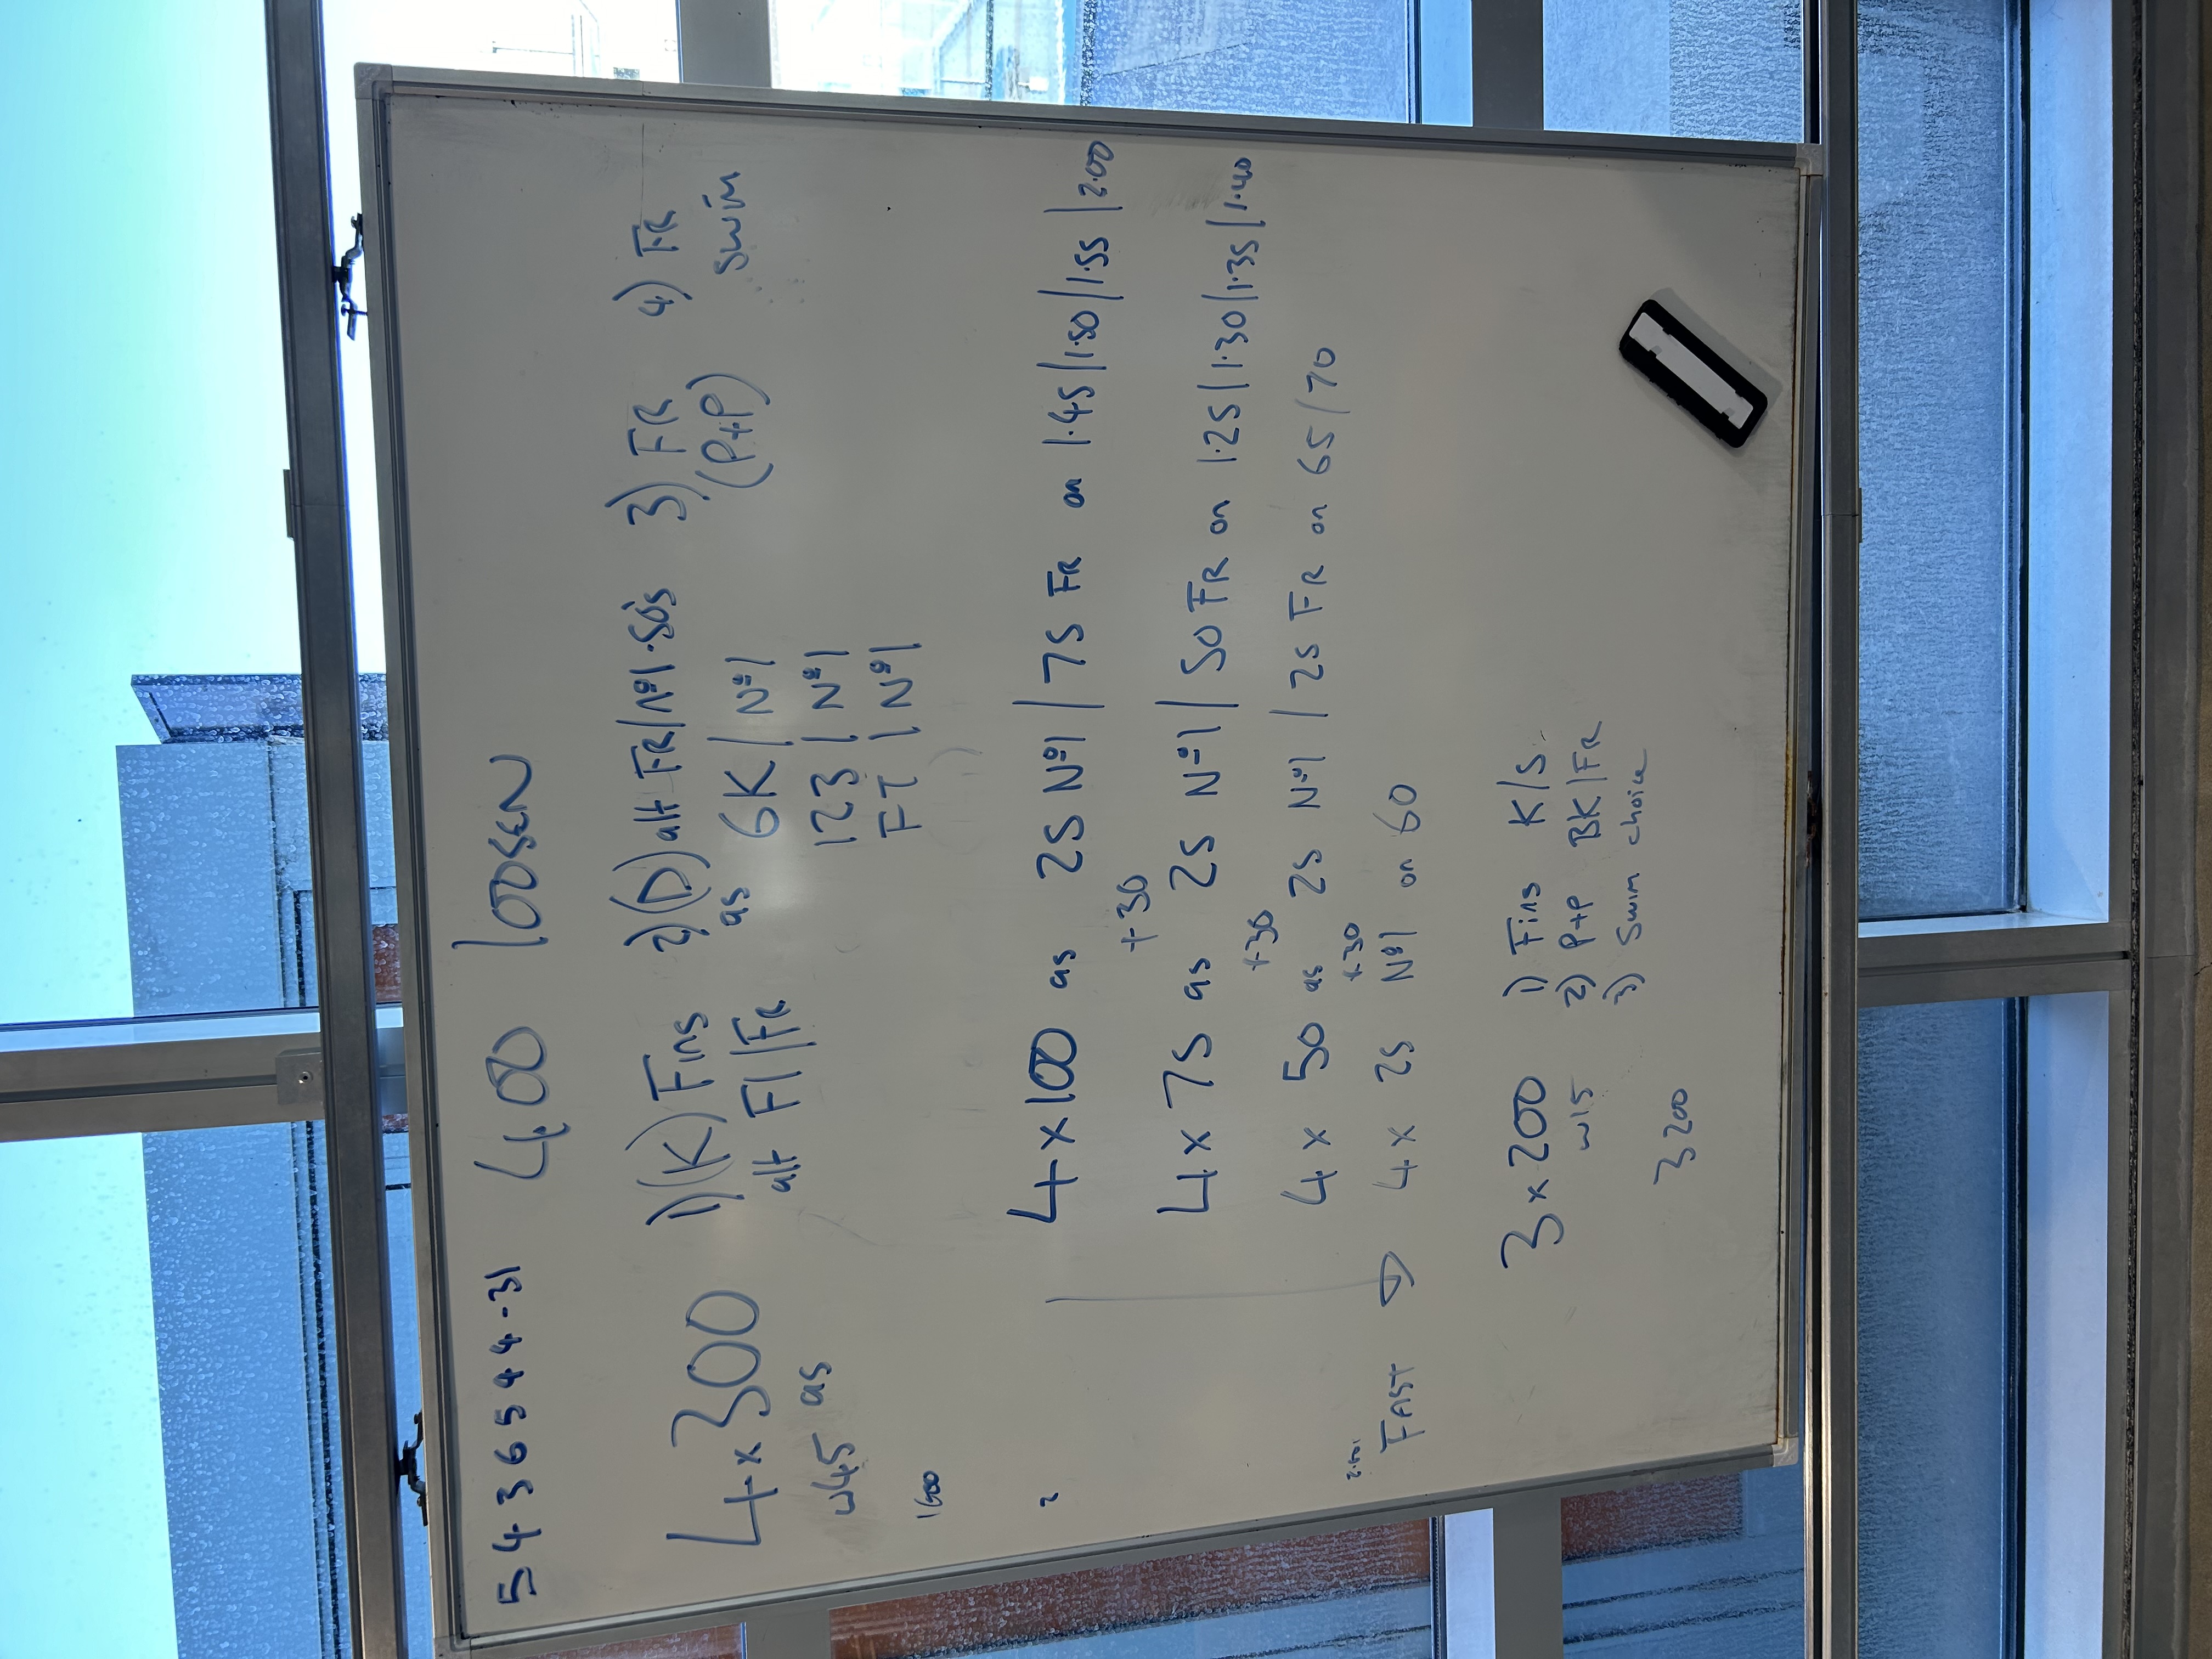 5 4 3 6 5 4 4 - 31 400 loosen
4x300 1)(K) Fins 2)(D) alt FR/Nº1·50s 3) FR 4) FR
w45 as alt Fl/FR as 6K/Nº1 (P+P) swim
123/Nº1
FT/Nº1
1600
2
4x100 as 25 Nº1/75 FR on 1.45/1.50/1.55/2.00
+30
4x75 as 25 Nº1/50 FR on 1.25/1.30/1.35/1.40
+30
4x50 as 25 Nº1/25 FR on 65/70
+30
FAST 4x25 Nº1 on 60
3x200 1) Fins K/S
w15 2) P+P BK/FR
3) Swim choice
3200